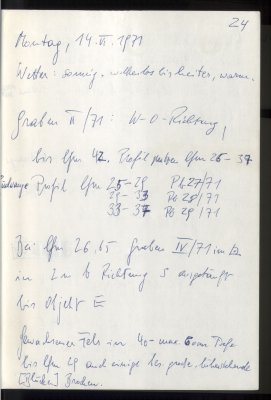 24
Montag, 14. VI. 1971
Wetter: sonnig, wolkenlos bis heiter, warm.
Graben II/71: W-O-Richtung,
bis lfm 42. Profil putzen lfm 25-37
Profil lfm 25-29 Pb 27/71
29-33 Pb 28/71
33-37 Pb 29/71
Bei lfm 26,65 Graben IV/71 in
in 2 m b Richtung S angelegt
bis Objekt E
Gewachsener Fels in 40-max. 60 cm Tiefe
bis lfm 29 auch einige bes. große,
[Blöcke] Brocken.